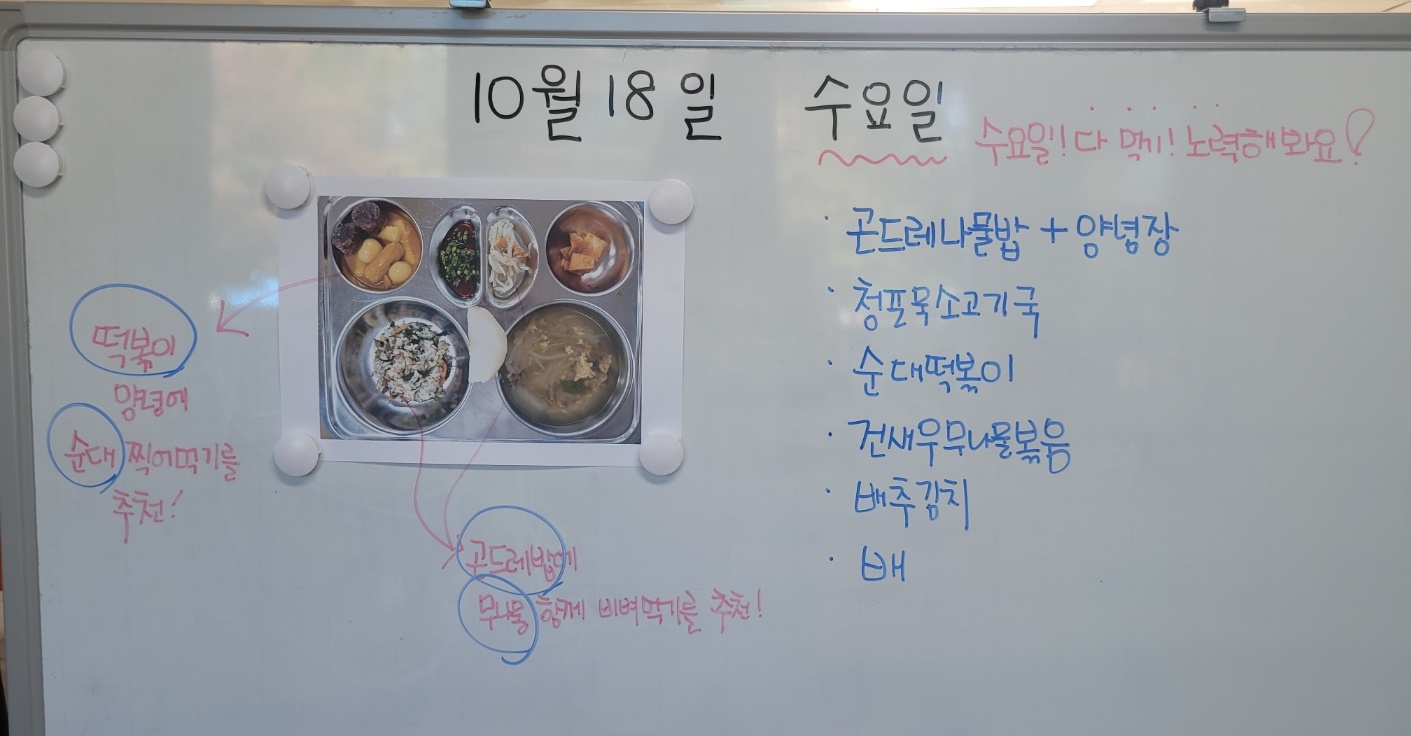 10월 18일 수요일
수요일! 다 먹기! 노력해봐요!
· 곤드레나물밥 + 양념장
· 청포묵소고기국
· 순대떡볶이
· 건새우무나물볶음
· 배추김치
· 배
떡볶이
양념에
순대 찍어먹기를
추천!
곤드레밥에
무나물 함께 비벼먹기를 추천!